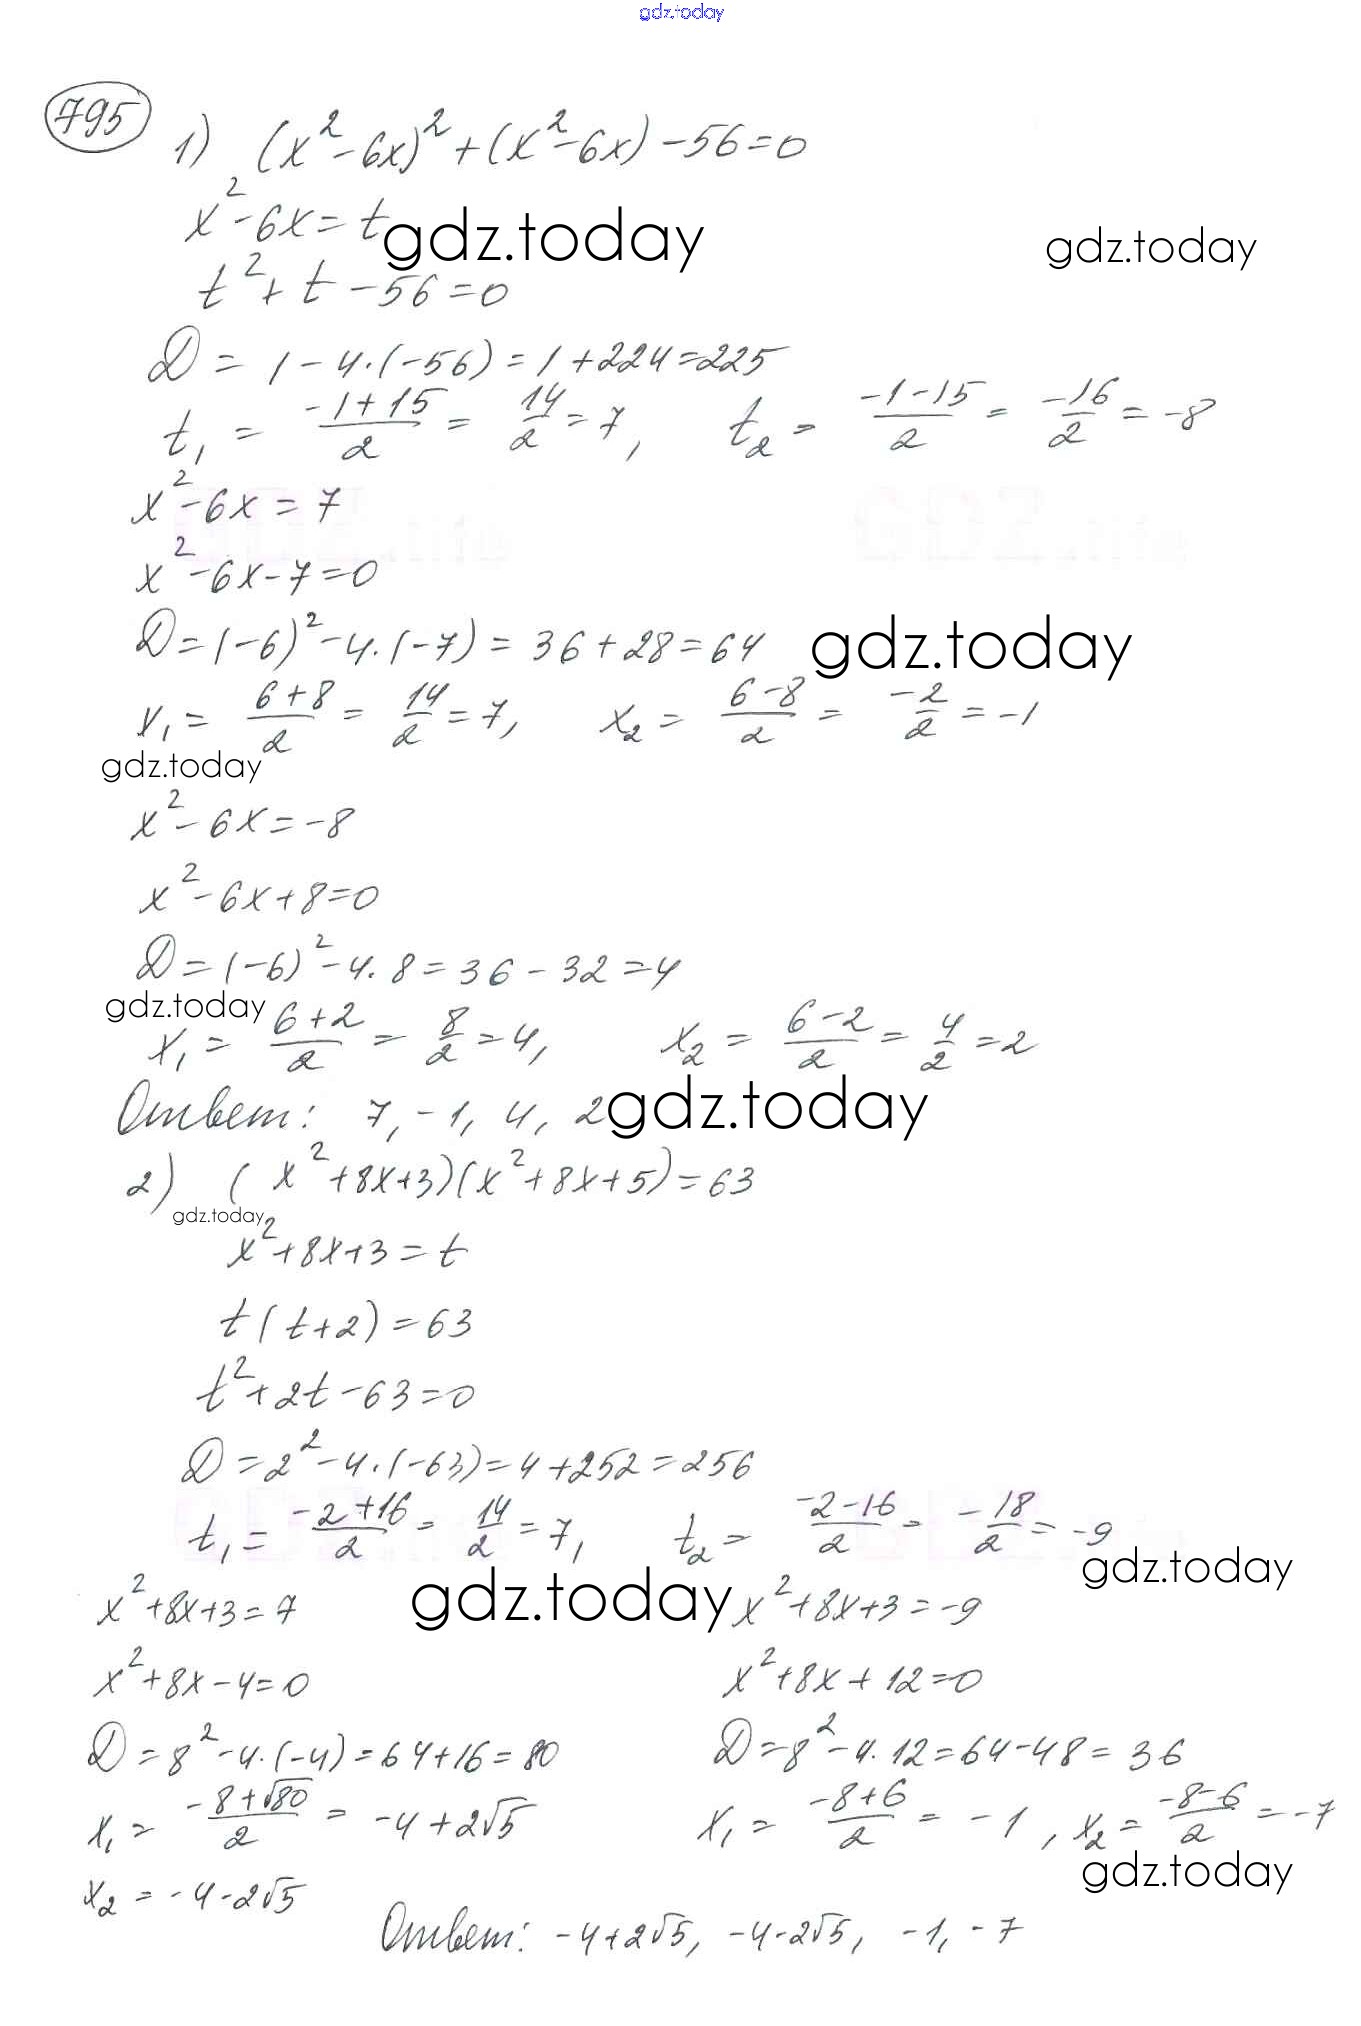 gdz.today
795
1) (x²-6x)²+(x²-6x)-56=0
x²-6x=t
gdz.today
gdz.today
t²+t-56=0
D=1-4·(-56)=1+224=225
t₁ = (-1+15)/2 = 14/2 = 7, t₂ = (-1-15)/2 = -16/2 = -8
x²-6x=7
x²-6x-7=0
D=(-6)²-4·(-7)=36+28=64 gdz.today
x₁ = (6+8)/2 = 14/2 = 7, x₂ = (6-8)/2 = -2/2 = -1
gdz.today
x²-6x=-8
x²-6x+8=0
D=(-6)²-4·8=36-32=4
gdz.today
x₁ = (6+2)/2 = 8/2 = 4, x₂ = (6-2)/2 = 4/2 = 2
Ответ: 7, -1, 4, 2 gdz.today
2) (x²+8x+3)(x²+8x+5)=63
gdz.today
x²+8x+3=t
t(t+2)=63
t²+2t-63=0
D=2²-4·(-63)=4+252=256
t₁ = (-2+16)/2 = 14/2 = 7, t₂ = (-2-16)/2 = -18/2 = -9
gdz.today
x²+8x+3=7 gdz.today x²+8x+3=-9
x²+8x-4=0 x²+8x+12=0
D=8²-4·(-4)=64+16=80 D=8²-4·12=64-48=36
x₁ = (-8+√80)/2 = -4+2√5 x₁ = (-8+6)/2 = -1, x₂ = (-8-6)/2 = -7
gdz.today
x₂ = -4-2√5
Ответ: -4+2√5, -4-2√5, -1, -7